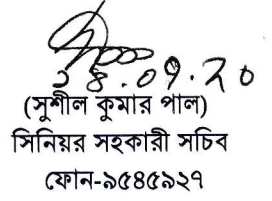 (সুশীল কুমার পাল)
সিনিয়র সহকারী সচিব
ফোন-৯৫৪৫৯২৭